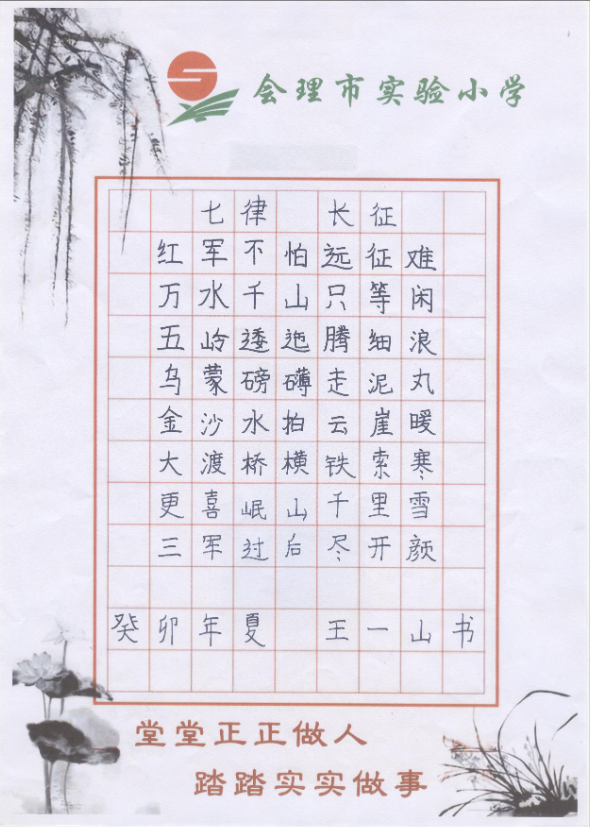 会理市实验小学
七律 长征
红军不怕远征难
万水千山只等闲
五岭逶迤腾细浪
乌蒙磅礴走泥丸
金沙水拍云崖暖
大渡桥横铁索寒
更喜岷山千里雪
三军过后尽开颜
癸卯年夏 王一山书
堂堂正正做人
踏踏实实做事